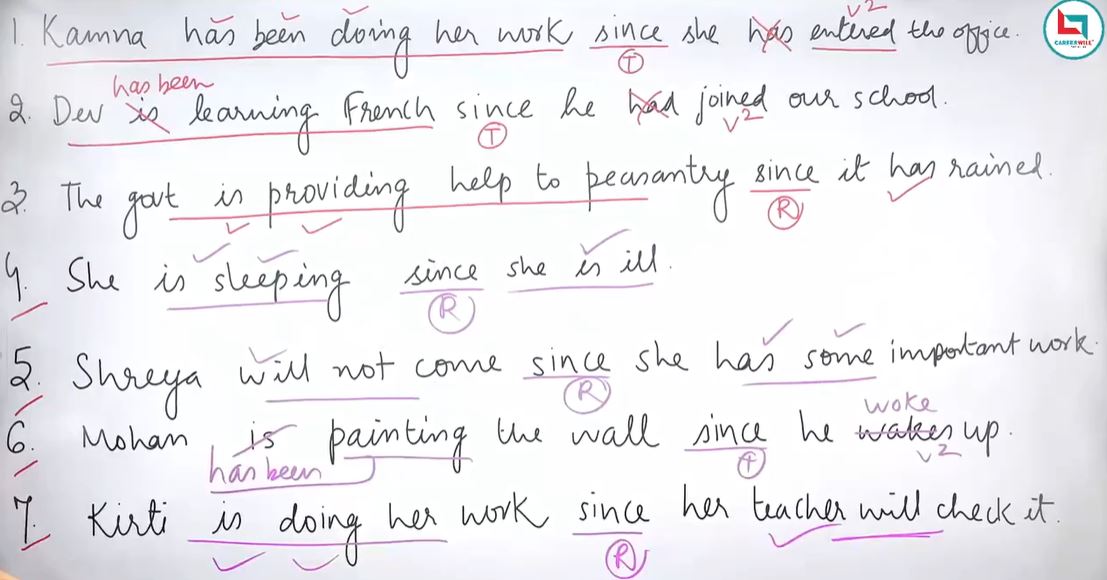 v2
1. Kamna has been doing her work since she has entered the office.
T
CAREERWILL
has been
2. Dev is learning French since he had joined our school.
T v2
3. The govt is providing help to peasantry since it has rained.
R
4. She is sleeping since she is ill.
R
5. Shreya will not come since she has some important work.
R
woke
6. Mohan is painting the wall since he wakes up.
has been T v2
7. Kirti is doing her work since her teacher will check it.
R